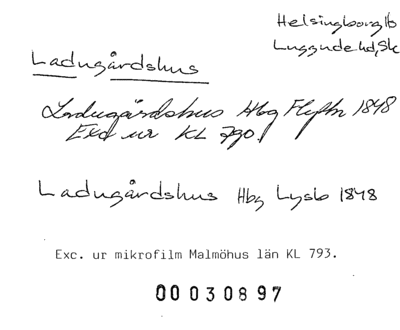 Helsingborg lb
Luggude hd, Sk
Ladugårdshus
Ladugårdshus Hbg Flyttn 1848
Exc ur KL 790.
Ladugårdshus Hbg Lysb 1848
Exc. ur mikrofilm Malmöhus län KL 793.
00030897